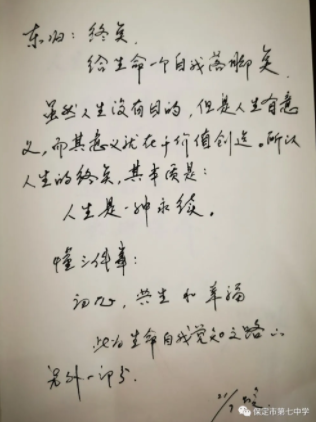 东归：终点，
给生命一个自我落脚点
虽然人生没有目的，但是人生有意
义，而其意义就在于价值创造。所以
人生的终点，其本质是：
人生是一种永续。
懂三件事：
初心，共生和幸福
此为生命自我觉知之路
另外一印分。
保定市第七中学